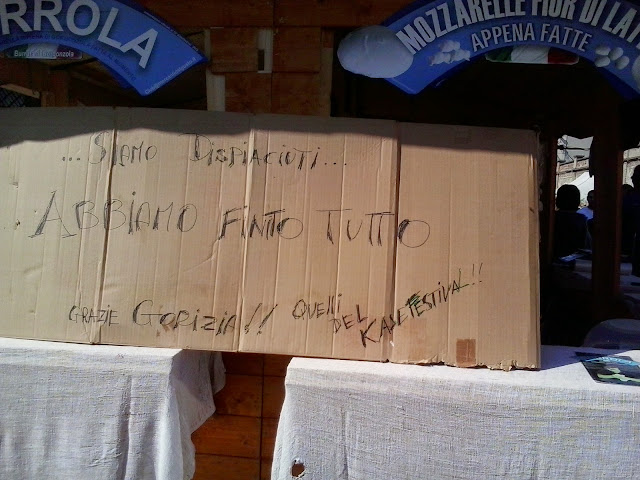 RROLA
MOZZARELLE FIOR DI LAT
APPENA FATTE
... SIAMO DISPIACIUTI ...
ABBIAMO FINTO TUTTO
GRAZIE GORIZIA!! QUELLI
DEL KASEFESTIVAL!!